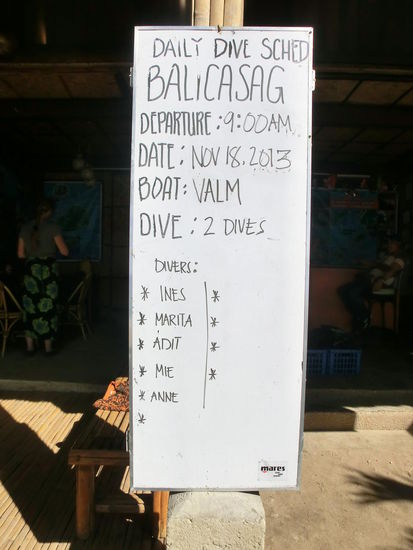 DAILY DIVE SCHED
BALICASAG
DEPARTURE: 9:00AM
DATE: NOV 18, 2013
BOAT: VALM
DIVE: 2 DIVES
DIVERS:
* INES *
* MARITA *
* ADIT *
* MIE *
* ANNE
*
mares